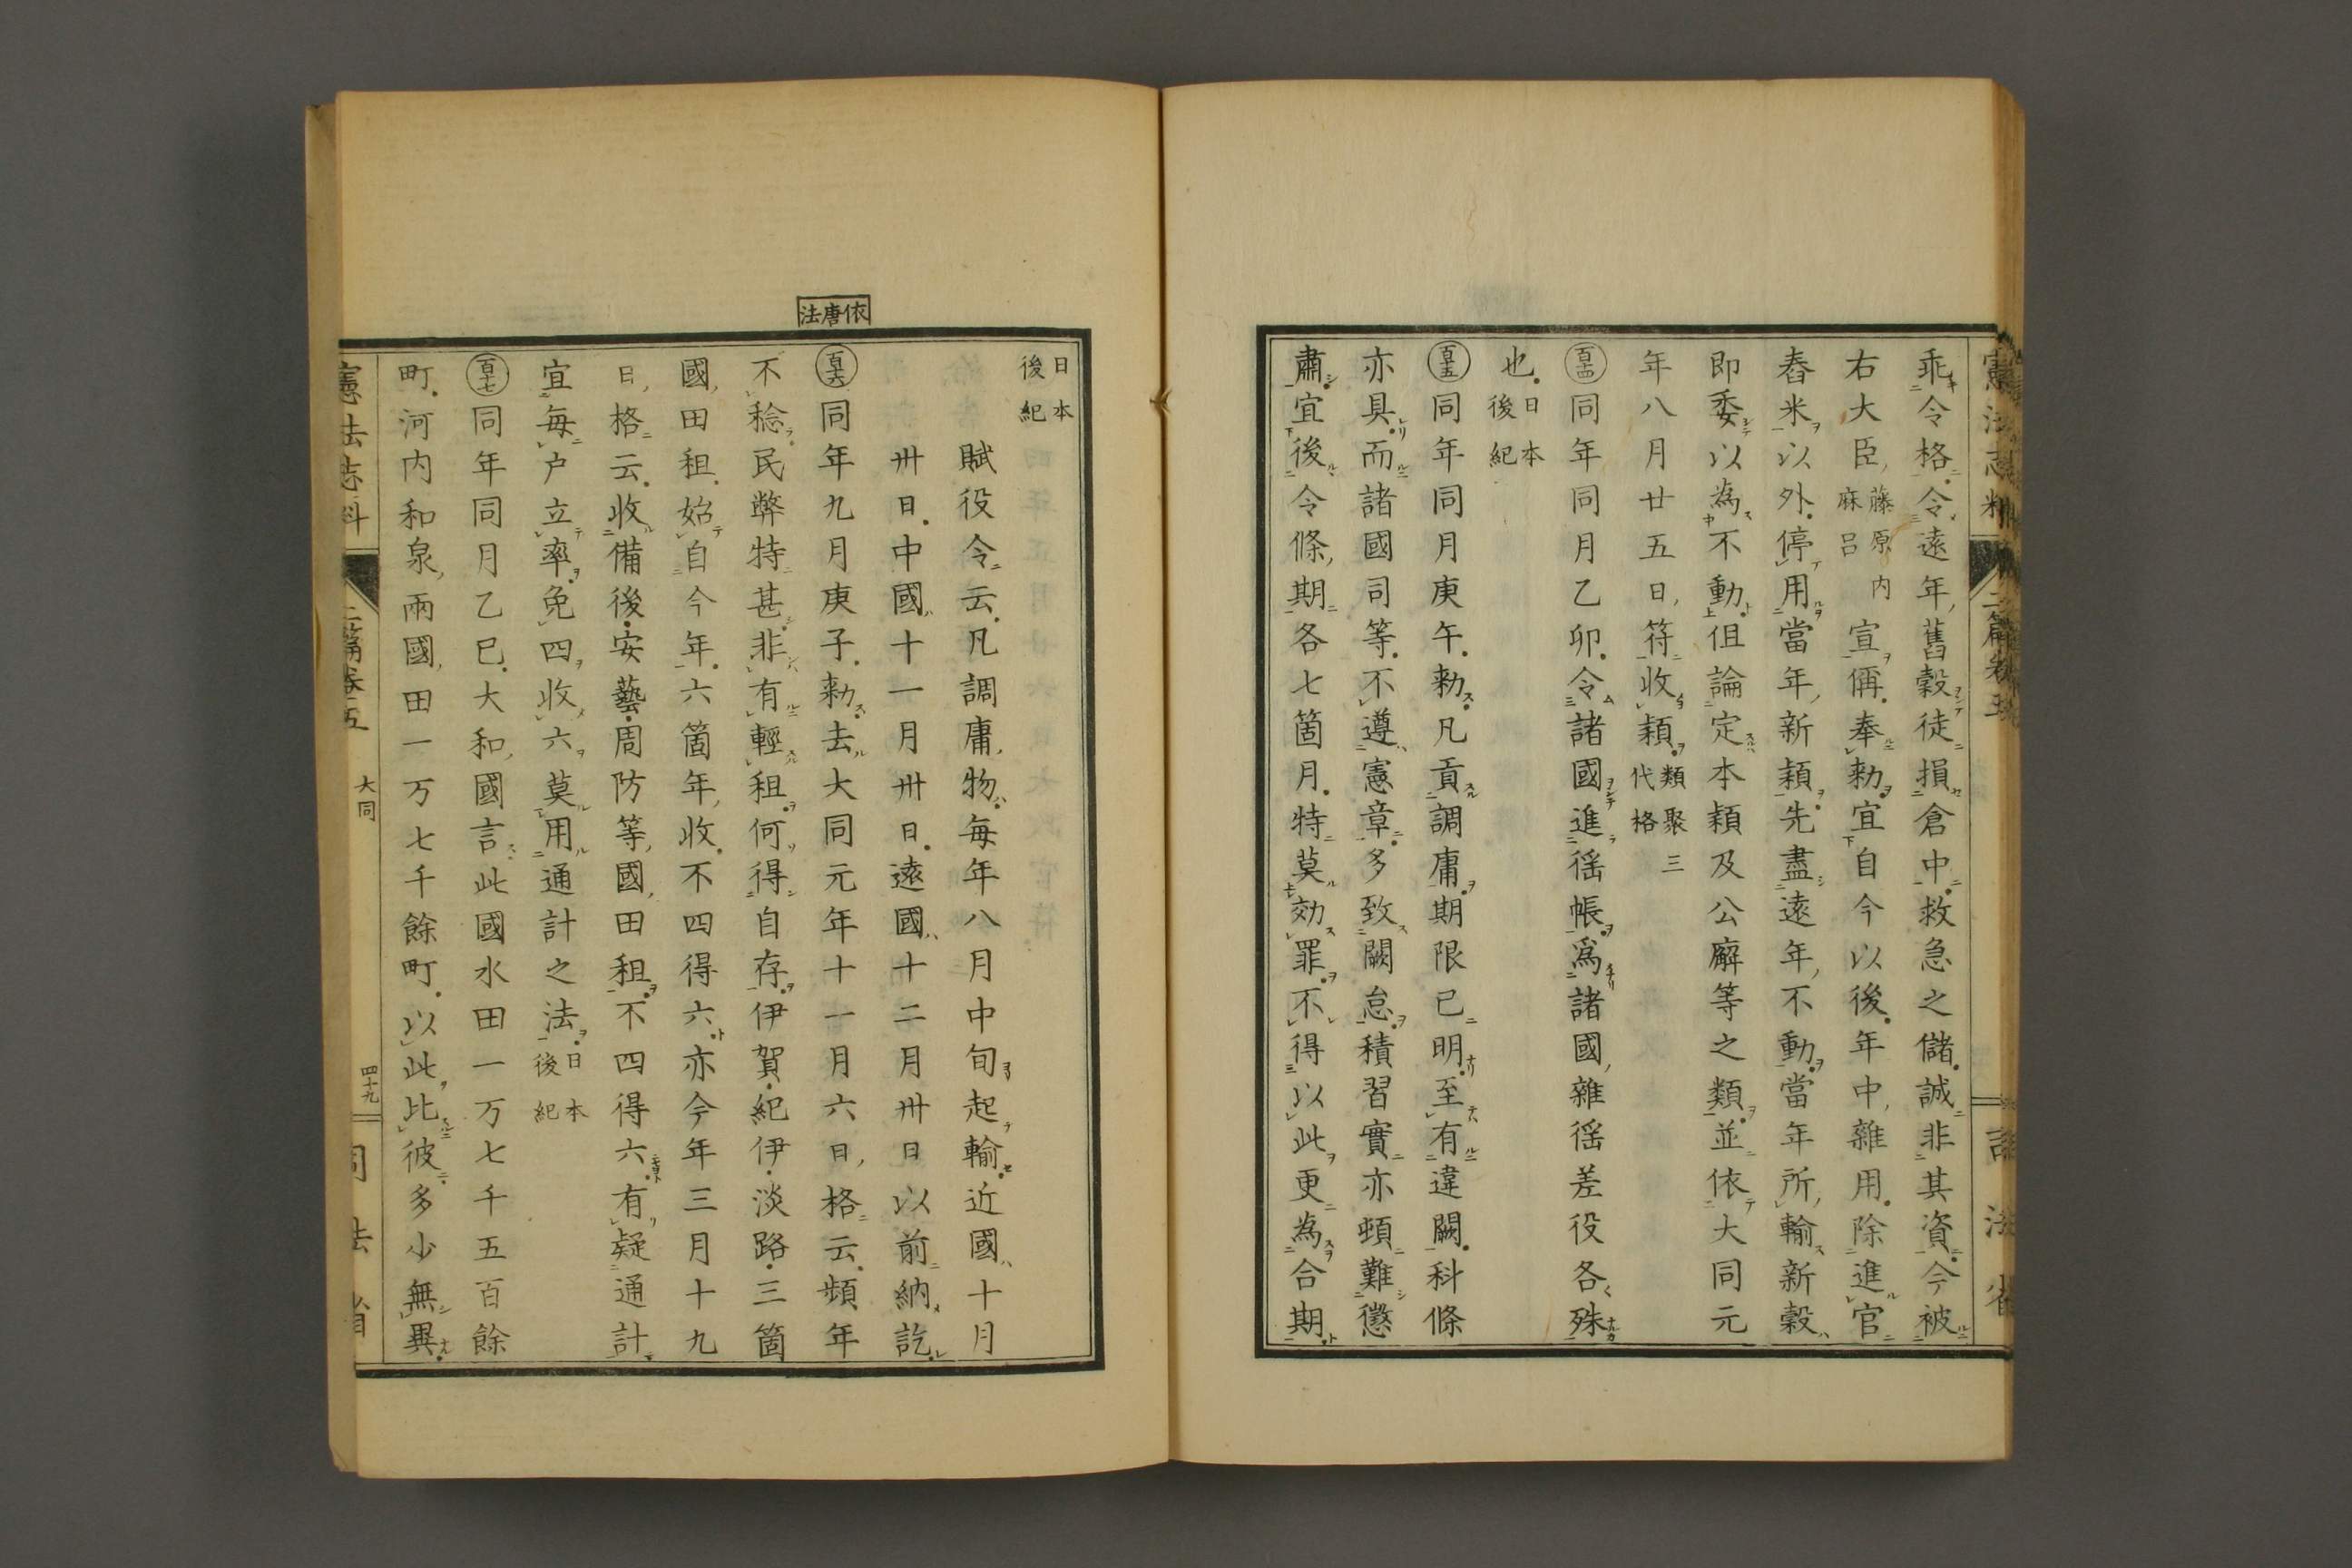 乖令格令遠年舊穀徒損倉中救急之儲誠非其資今被
右大臣藤原内麻呂宣偁奉勅宜自今以後年中雜用除進官
舂米以外停用當年新穎先盡遠年不動當年所輸新穀
即委以為不動但論定本穎及公廨等之類並依大同元
年八月廿五日符收穎類聚三代格
百十四同年同月乙卯令諸國進徭帳爲諸國雜徭差役各殊
也日本後紀
百十五同年同月庚午勅凡貢調庸期限已明至有違闕科條
亦具而諸國司等不遵憲章多致闕怠積習實亦頓難懲
肅宜後令條期各七箇月特莫効罪不得以此更為合期
日本後紀
賦役令云凡調庸物每年八月中旬起輸近國十月
卅日中國十一月卅日遠國十二月卅日以前納訖
依唐法
百十六同年九月庚子勅去大同元年十一月六日格云頻年
不稔民弊特甚非有輕租何得自存伊賀紀伊淡路三箇
國田租始自今年六箇年收不四得六亦今年三月十九
日格云收備後安藝周防等國田租不四得六有疑通計
宜每户立率免四收六莫用通計之法日本後紀
百十七同年同月乙巳大和國言此國水田一万七千五百餘
町河内和泉兩國田一万七千餘町以此比彼多少無異
憲法志料
三篇卷五
大同
四十九
司法省